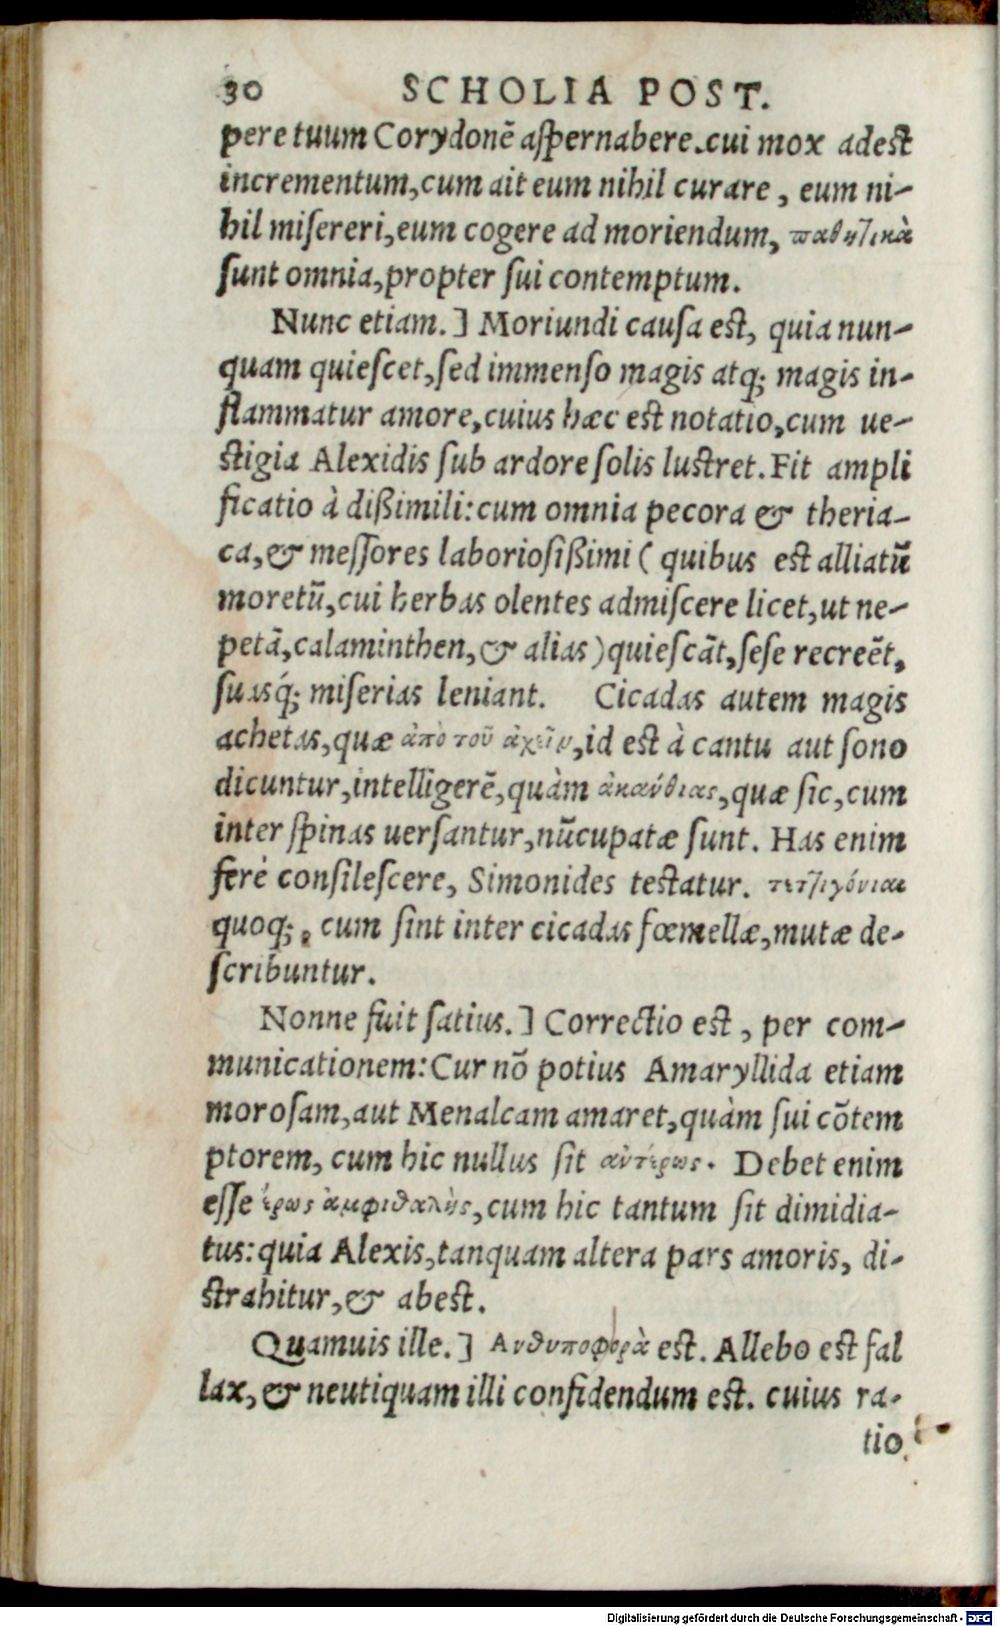 30 SCHOLIA POST.
pere tuum Corydonē aſpernabere.cui mox adest
incrementum,cum ait eum nihil curare, eum ni-
hil miſereri,eum cogere ad moriendum, παθητικὰ
ſunt omnia,propter ſui contemptum.
Nunc etiam.] Moriundi cauſa est, quia nun-
quam quieſcet,ſed immenſo magis atq; magis in-
flammatur amore,cuius hæc est notatio,cum ue-
stigia Alexidis ſub ardore ſolis lustret.Fit ampli
ficatio à dißimili:cum omnia pecora & theria-
ca,& meſſores laborioſißimi ( quibus est alliatū
moretū,cui herbas olentes admiſcere licet,ut ne-
petā,calaminthen,& alias)quieſcāt,ſeſe recreēt,
ſuasq́; miſerias leniant. Cicadas autem magis
achetas,quæ ἀπὸ τοῦ ἀχεῖν,id est à cantu aut ſono
dicuntur,intelligerē,quàm ἀκανθίας,quæ ſic,cum
inter ſpinas uerſantur,nūcupatæ ſunt. Has enim
ferè conſileſcere, Simonides testatur. τετλιγόνιαι
quoq;, cum ſint inter cicadas fœmellæ,mutæ de-
ſcribuntur.
Nonne fuit ſatius.] Correctio est, per com-
municationem:Cur nō potius Amaryllida etiam
moroſam,aut Menalcam amaret,quàm ſui cōtem
ptorem, cum hic nullus ſit ἀντέρως. Debet enim
eſſe ἔρως ἀμφιθαλὴς,cum hic tantum ſit dimidia-
tus:quia Alexis,tanquam altera pars amoris, di-
strahitur,& abest.
Quamuis ille.] Ανθυποφορὰ est. Allebo est fal
lax,& neutiquam illi confidendum est. cuius ra-
tio
Digitalisierung gefördert durch die Deutsche Forschungsgemeinschaft - DFG